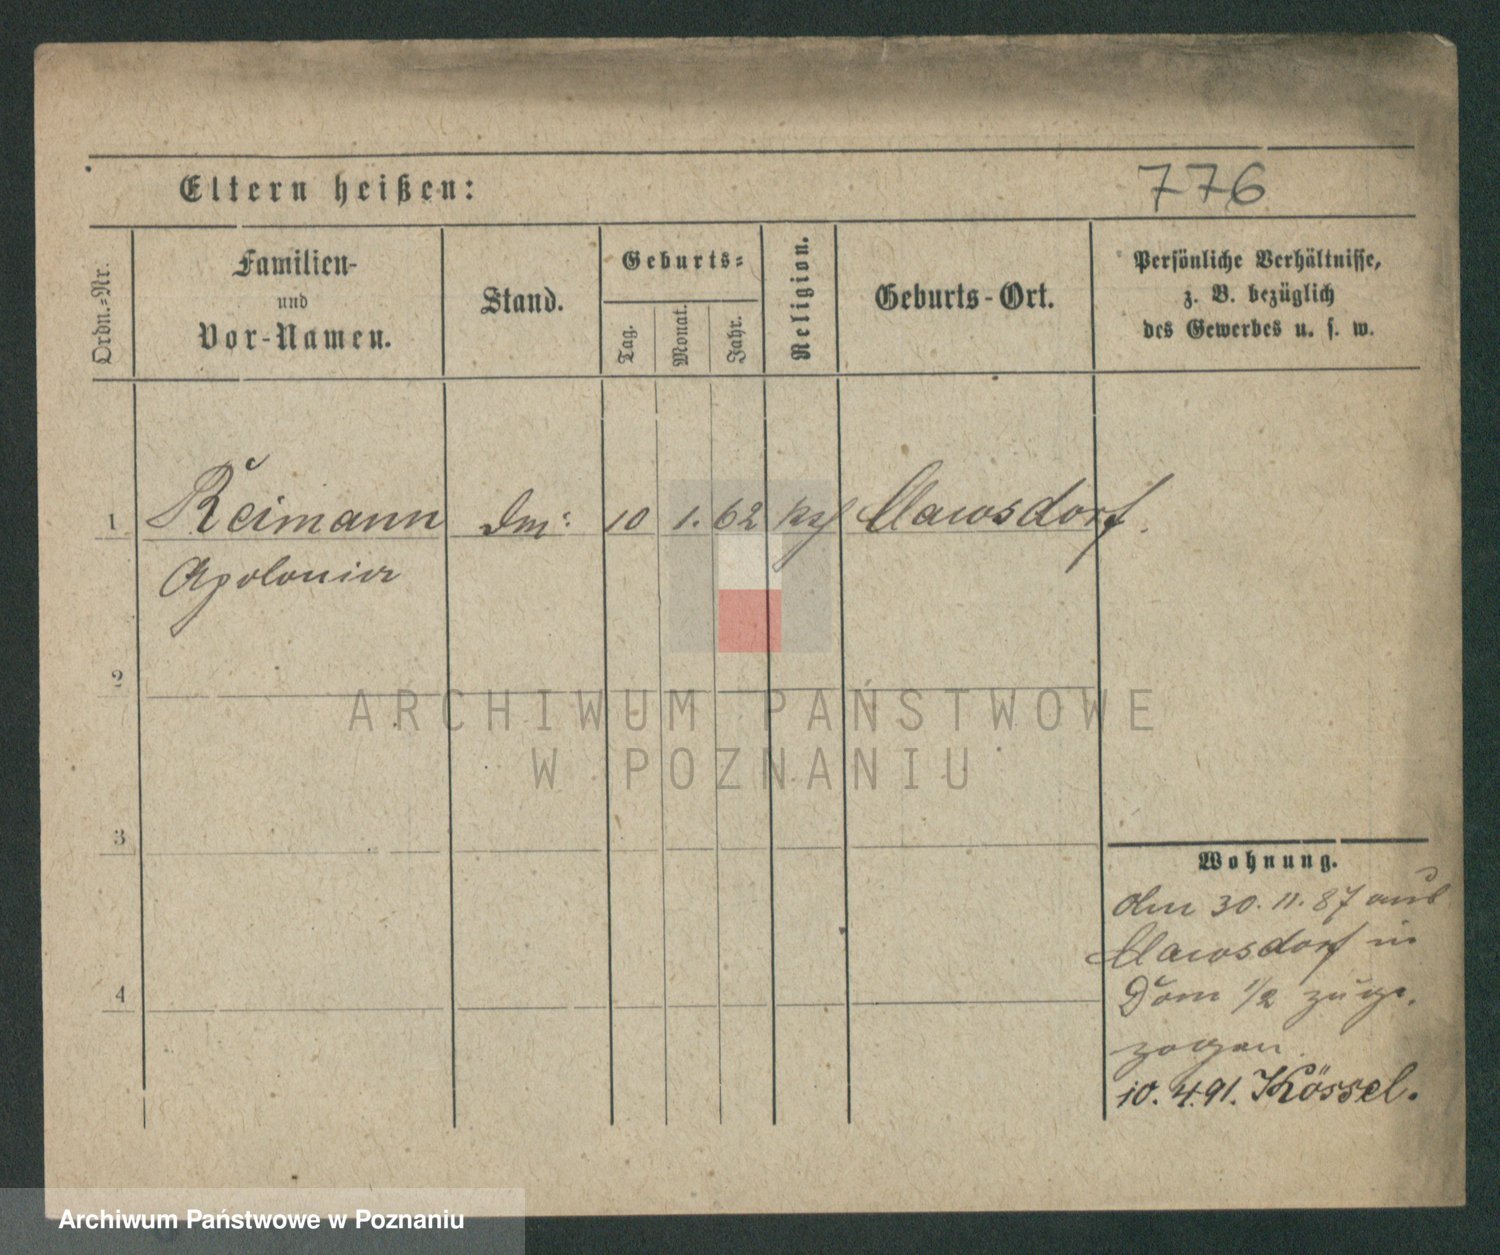 Eltern heißen:
776
Ordn.-Nr.
Familien-
und
Vor-Namen.
Stand.
Geburts-
Tag.
Monat.
Jahr.
Religion.
Geburts-Ort.
Persönliche Verhältnisse,
z. B. bezüglich
des Gewerbes u. s. w.
1 Reimann 10 1. 62
Apolonia
2
3
4
ARCHIWUM PAŃSTWOWE
W POZNANIU
Wohnung.
30. 11. 87 aus
in
Dom 1/2 zuge-
zogen
10. 4. 91. Kössel.
Archiwum Państwowe w Poznaniu